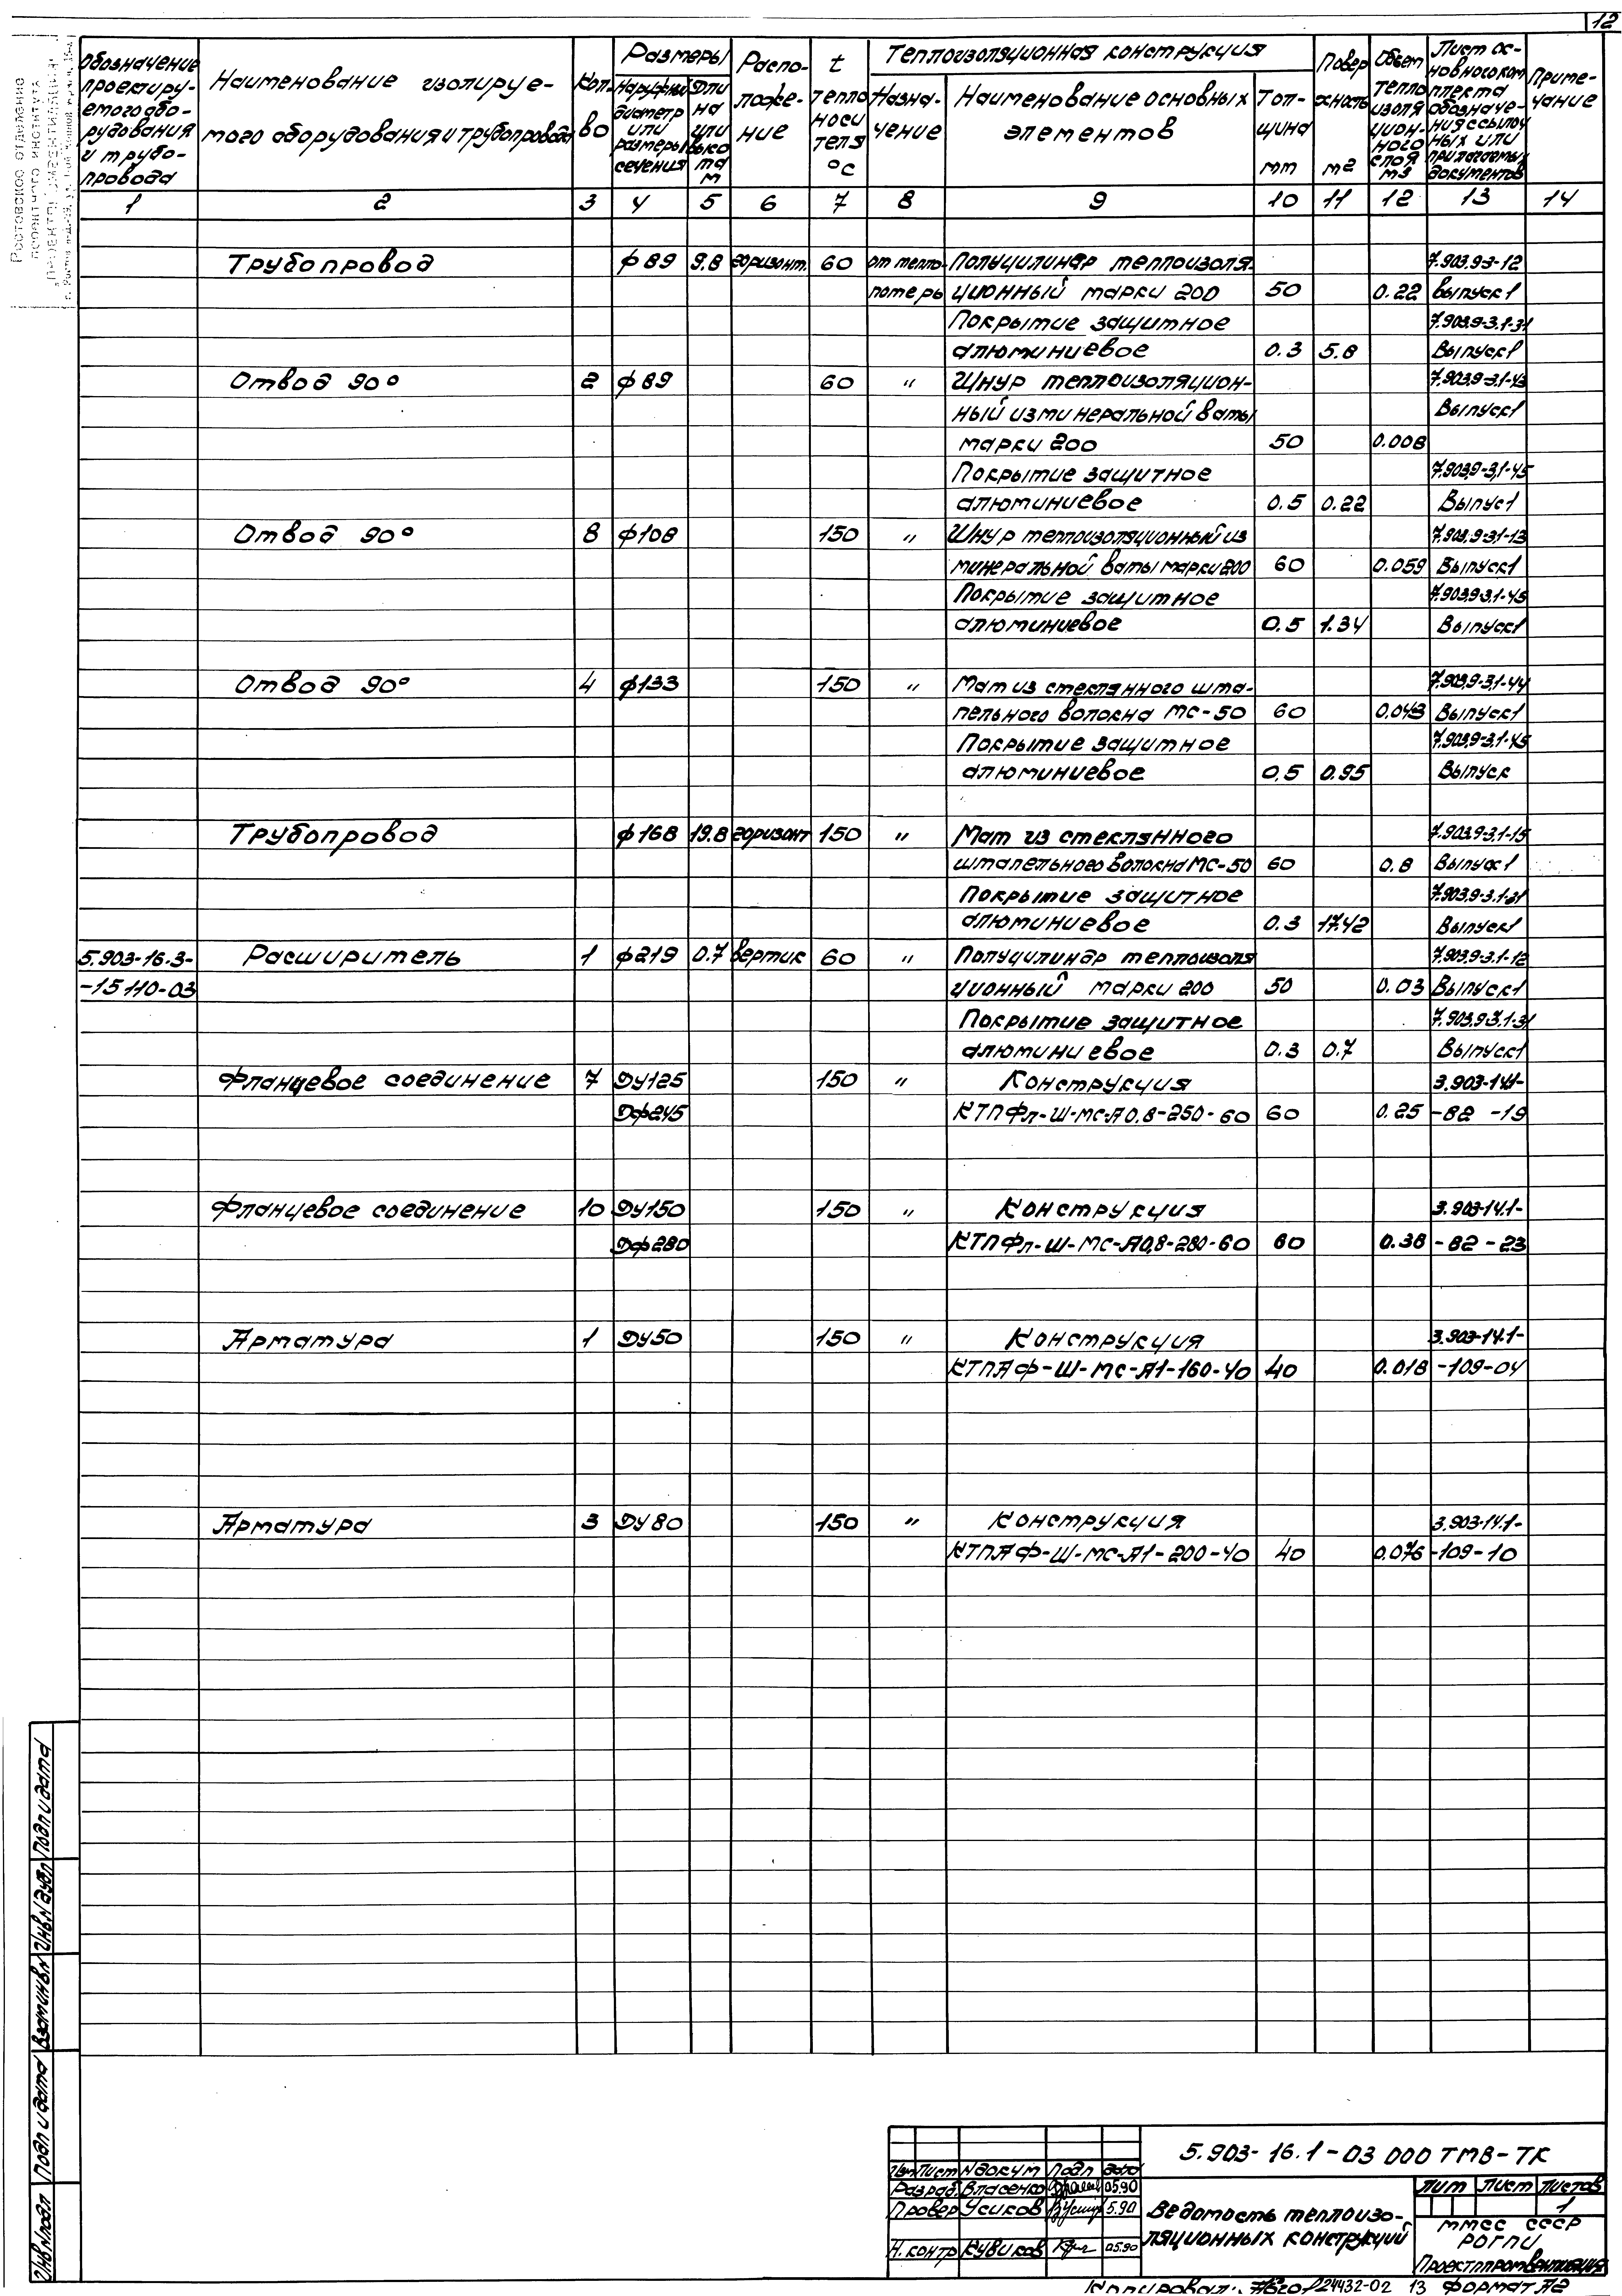 12
Ростовское отделение
проектного института
Обозначение проектируемого оборудования и трубопровода
Наименование изолируемого оборудования и трубопровода
Кол-во
Размеры
Наружный диаметр или размеры сечения
Длина или высота м
Расположение
t теплоносителя °С
Теплоизоляционная конструкция
Назначение
Наименование основных элементов
Толщина мм
Поверхность м2
Объем теплоизоляционного слоя м3
Лист основного комплекта обозначения ссылочных или прилагаемых документов
Примечание
1 2 3 4 5 6 7 8 9 10 11 12 13 14
Трубопровод ф89 9.8 горизонт. 60 от тепло- Полуцилиндр теплоизоля- 7.903.9-3-12
потерь ционный марки 200 50 0.22 Выпуск1
Покрытие защитное 7.903.9-3.1-31
алюминиевое 0.3 5.8 Выпуск1
Отвод 90° 2 ф89 60 " Шнур теплоизоляцион- 7.903.9-3.1-43
ный из минеральной ваты Выпуск1
марки 200 50 0.008
Покрытие защитное 7.903.9-3.1-45
алюминиевое 0.5 0.22 Выпус1
Отвод 90° 8 ф108 150 " Шнур теплоизоляционный из 7.903.9-3.1-13
минеральной ваты марки 200 60 0.059 Выпуск1
Покрытие защитное 7.903.9-3.1-45
алюминиевое 0.5 1.34 Выпуск1
Отвод 90° 4 ф133 150 " Мат из стеклянного шта- 7.903.9-3.1-44
пельного волокна МС-50 60 0.043 Выпуск1
Покрытие защитное 7.903.9-3.1-45
алюминиевое 0.5 0.95 Выпуск
Трубопровод ф168 19.8 горизонт 150 " Мат из стеклянного 7.903.9-3.1-15
штапельного волокна МС-50 60 0.8 Выпуск1
Покрытие защитное 7.903.9-3.1-31
алюминиевое 0.3 17.42 Выпуск1
5.903-16.3- Расширитель 1 ф219 0.7 вертик 60 " Полуцилиндр теплоизоля 7.903.9-3.1-12
-15 110-03 ционный марки 200 50 0.03 Выпуск1
Покрытие защитное 7.903.9-3.1-31
алюминиевое 0.3 0.7 Выпуск1
Фланцевое соединение 7 Ду125 150 " Конструкция 3.903-14.1-
Дф245 КТПФл-Ш-МС-А0.8-250-60 60 0.25 -82 -19
Фланцевое соединение 10 Ду150 150 " Конструкция 3.903-14.1-
Дф280 КТПФл-Ш-МС-А0,8-280-60 60 0.38 -82 -23
Арматура 1 Ду50 150 " Конструкция 3.903-14.1-
КТПАФ-Ш-МС-А1-160-40 40 0.018 -109-04
Арматура 3 Ду80 150 " Конструкция 3.903-14.1-
КТПАФ-Ш-МС-А1-200-40 40 0.076 -109-10
Инв.N подл Подп и дата Взам инв.N Инв.N дубл Подп и дата
5.903-16.1-03 000 ТМВ-ТК
Изм Лист N докум Подп Дата
Разраб. Власенко 05.90
Провер Усиков 5.90
Н.контр Кувиков 05.90
Ведомость теплоизо-
ляционных конструкций
Лит Лист Листов
1
ММСС СССР
РОГПИ
Проектпромвентиляция
Копировал: 24432-02 13 Формат А2